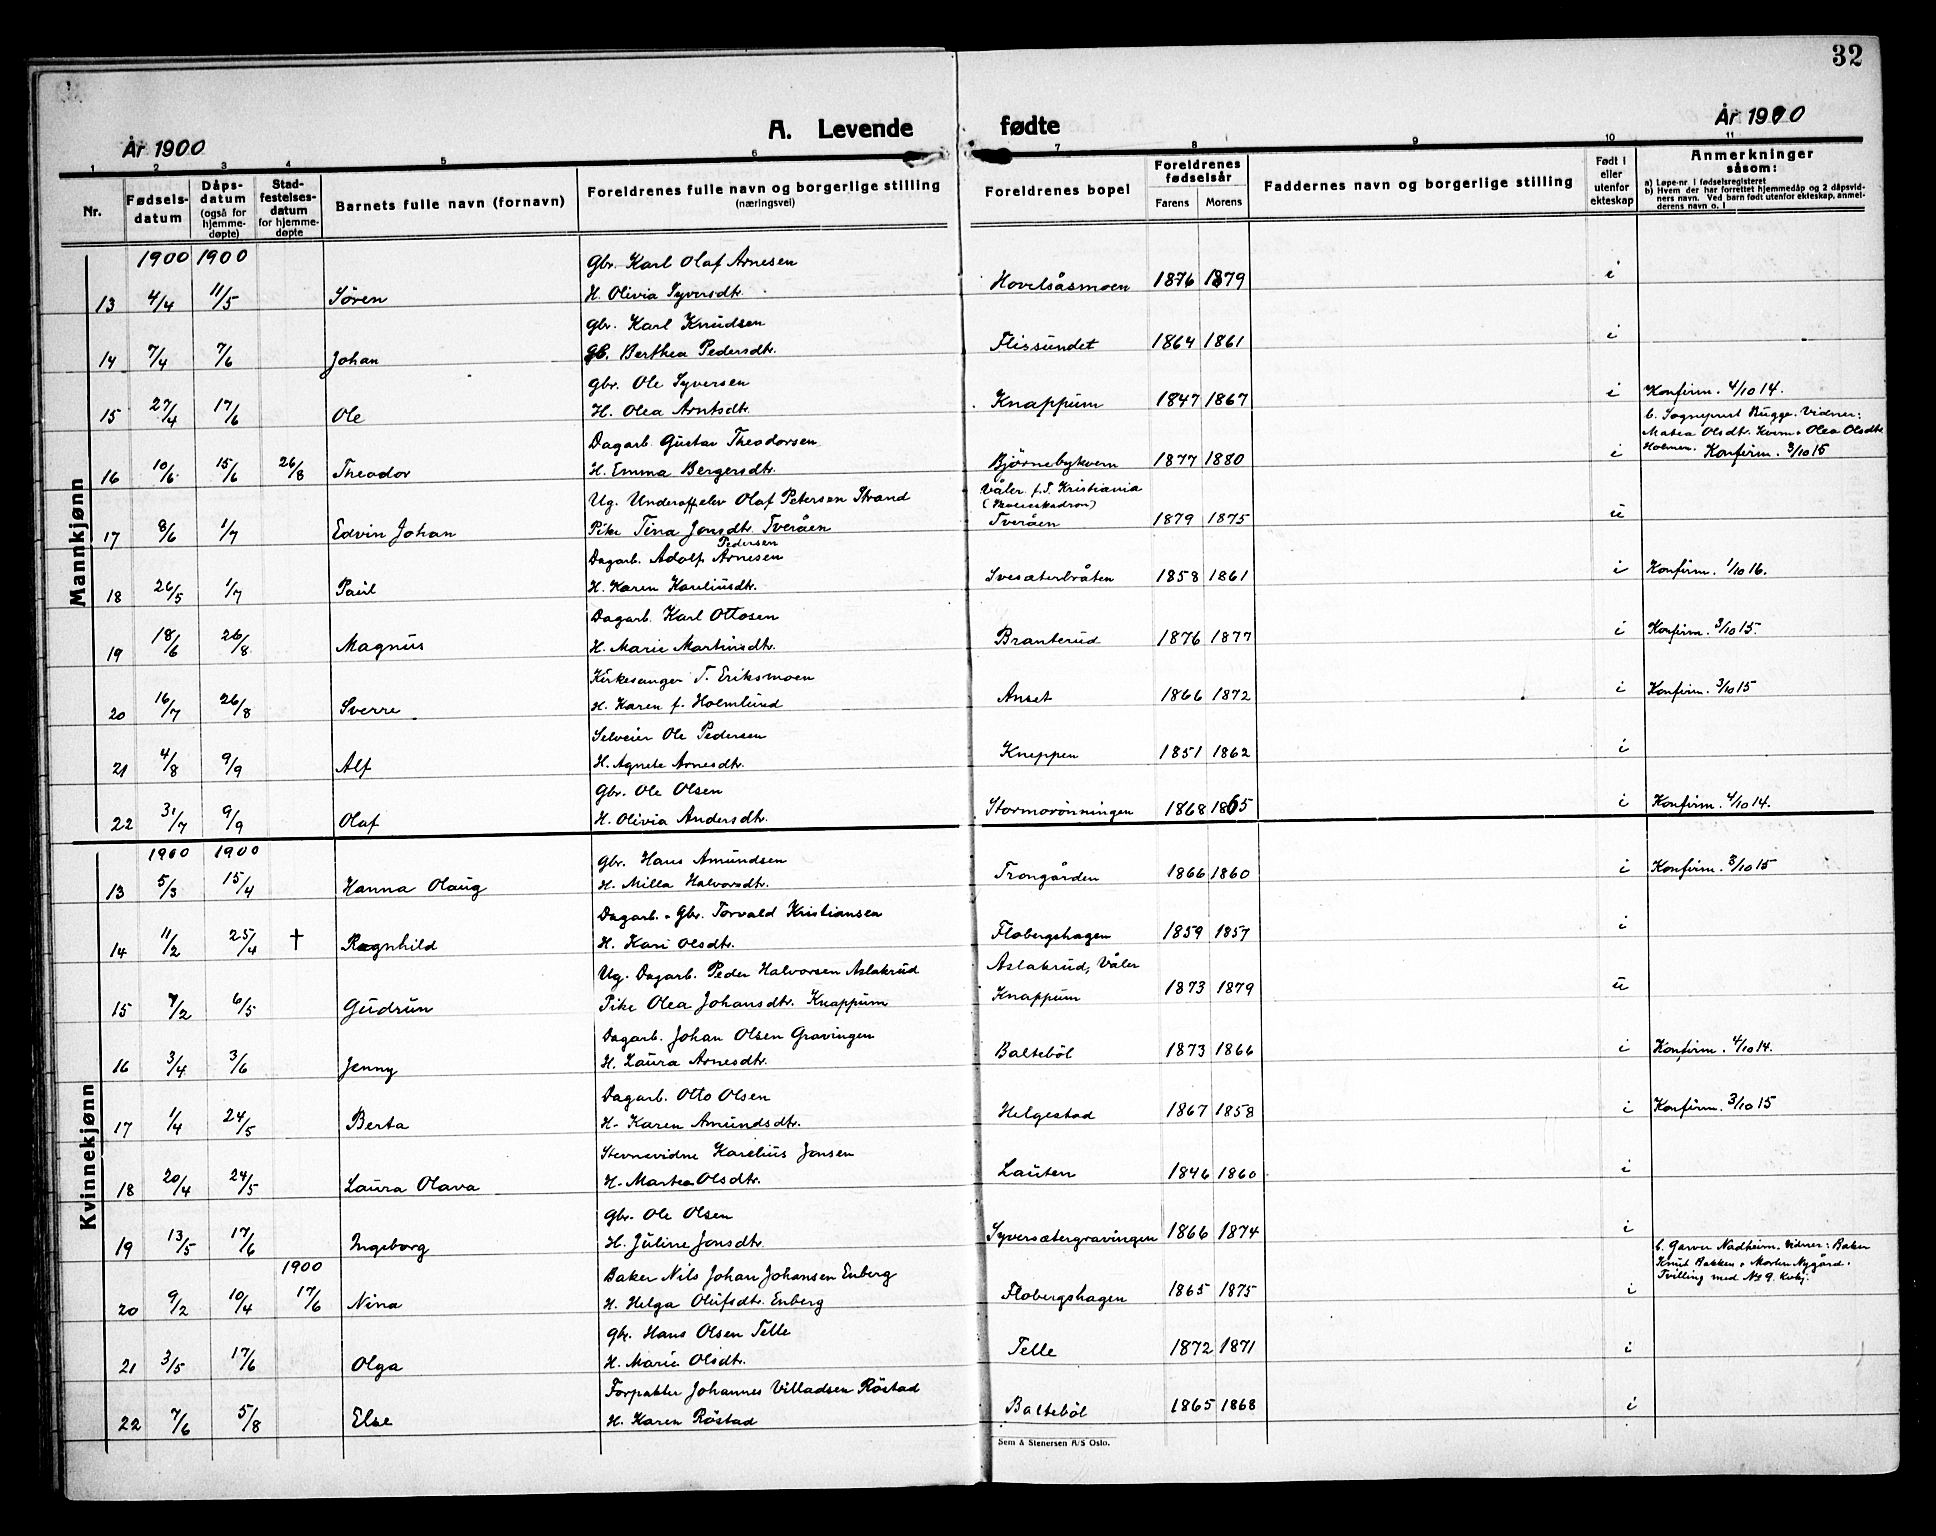 32
År 1900 A. Levende fødte År 1900
1 2 3 4 5 6 7 8 9 10 11
Nr. Fødsels-datum Dåps-datum (også for hjemme-døpte) Stad-festelses-datum for hjemme-døpte Barnets fulle navn (fornavn) Foreldrenes fulle navn og borgerlige stilling (næringsvei) Foreldrenes bopel Foreldrenes fødselsår Farens Morens Faddernes navn og borgerlige stilling Født i eller utenfor ekteskap Anmerkninger såsom: a) Løpe-nr. i fødselsregisteret b) Hvem der har forrettet hjemmedåp og 2 dåpsvidners navn. Ved barn født utenfor ekteskap, anmelderens navn o. l.
Mannkjønn
1900 1900 Gbr. Karl Olaf Arnesen
13 4/4 11/5 Søren H. Olivia Syversdtr. Hovelsåsmoen 1876 1879 i
Gbr. Karl Knudsen
14 7/4 7/6 Johan Berthea Pedersdtr. Flissundet 1864 1861 i
Gbr. Ole Syversen
15 27/4 17/6 Ole H. Olea Arntsdtr. Knappum 1847 1867 i Konfirm. 4/10 14.
b. Sogneprest Bugge. Vidner:
Matea Olsdtr. Kvern. Olea Olsdtr.
Dagarb. Gustav Theodorsen
16 10/6 15/6 26/8 Theodor H. Emma Bergersdtr. Bjørnebykvern 1877 1880 i Holmen. Konfirm. 3/10 15
Ug. Underoff.elev Olaf Petersen Strand Våler f.T. Kristiania
17 8/6 1/7 Edvin Johan Pike Tina Jonsdtr. Tveråen Tveråen 1879 1875 u
Pedersen
Dagarb. Adolf Arnesen
18 26/5 1/7 Paul H. Karen Kareliusdtr. Svesæterbråten 1858 1861 i Konfirm. 1/10 16.
Dagarb. Karl Ottosen
19 18/6 26/8 Magnus H. Marie Martinsdtr. Branterud 1876 1877 i Konfirm. 3/10 15.
Kirkesanger T. Eriksmoen
20 16/7 26/8 Sverre H. Karen f. Holmlund Anset 1866 1872 i Konfirm. 3/10 15
Selveier Ole Pedersen
21 4/8 9/9 Alf H. Agnete Arnesdtr. Kneppen 1851 1862 i
Gbr. Ole Olsen
22 31/7 9/9 Olaf H. Olivia Andersdtr. Stormorønningen 1868 1865 i Konfirm. 4/10 14.
Kvinnekjønn
1900 1900 Gbr. Hans Amundsen
13 5/3 15/4 Hanna Olaug H. Milla Halvorsdtr. Trongården 1866 1860 i Konfirm. 3/10 15
Dagarb. - Gbr. Torvald Kristiansen
14 11/2 25/4 † Ragnhild H. Kari Olsdtr. Flobergshagen 1859 1857 i
Ug. Dagarb. Peder Halvorsen Aslakrud Aslakrud, Våler
15 7/2 6/5 Gudrun Pike Olea Johansdtr. Knappum Knappum 1873 1879 u
Dagarb. Johan Olsen Gravingen
16 3/4 3/6 Jenny H. Laura Arnesdtr. Baltebøl 1873 1866 i Konfirm. 4/10 14.
Dagarb. Otto Olsen
17 1/4 24/5 Berta H. Karen Amundsdtr. Helgestad 1867 1858 i Konfirm. 3/10 15
Stevnevidne Karelius Jonsen
18 20/4 24/5 Laura Olava H. Martea Olsdtr. Lauten 1846 1860 i
Gbr. Ole Olsen
19 13/5 17/6 Ingeborg H. Juline Jonsdtr. Syversætergravingen 1866 1874 i
b. Garver Nadheim. Vidner: Baker
Knut Bakken o Morten Nygård.
1900 Baker Nils Johan Johansen Enberg Tvilling med No 9. kvkj.
20 9/2 10/4 17/6 Nina H. Helga Olufsdtr. Enberg Flobergshagen 1865 1875 i
Gbr. Hans Olsen Telle
21 3/5 17/6 Olga H. Marie Olsdtr. Telle 1872 1871 i
Forpakter Johannes Villadsen Røstad
22 7/6 5/8 Else H. Karen Røstad Baltebøl 1865 1868 i
Sem & Stenersen A/S Oslo.